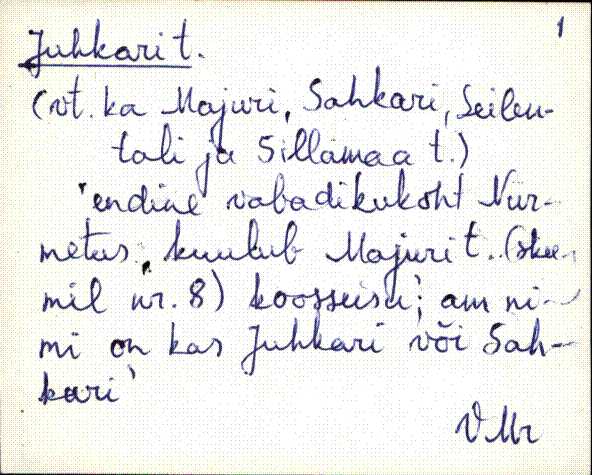 1
Juhkari t.
(vt. ka Majuri, Sahkari, Seilen-
tali ja Sillamaa t.)
'endine vabadikukoht Nur-
metus, kuulub Majuri t. (skee-
mil nr. 8) koosseisu; am ni-
mi on kas Juhkari või Sah-
kari'
VMr